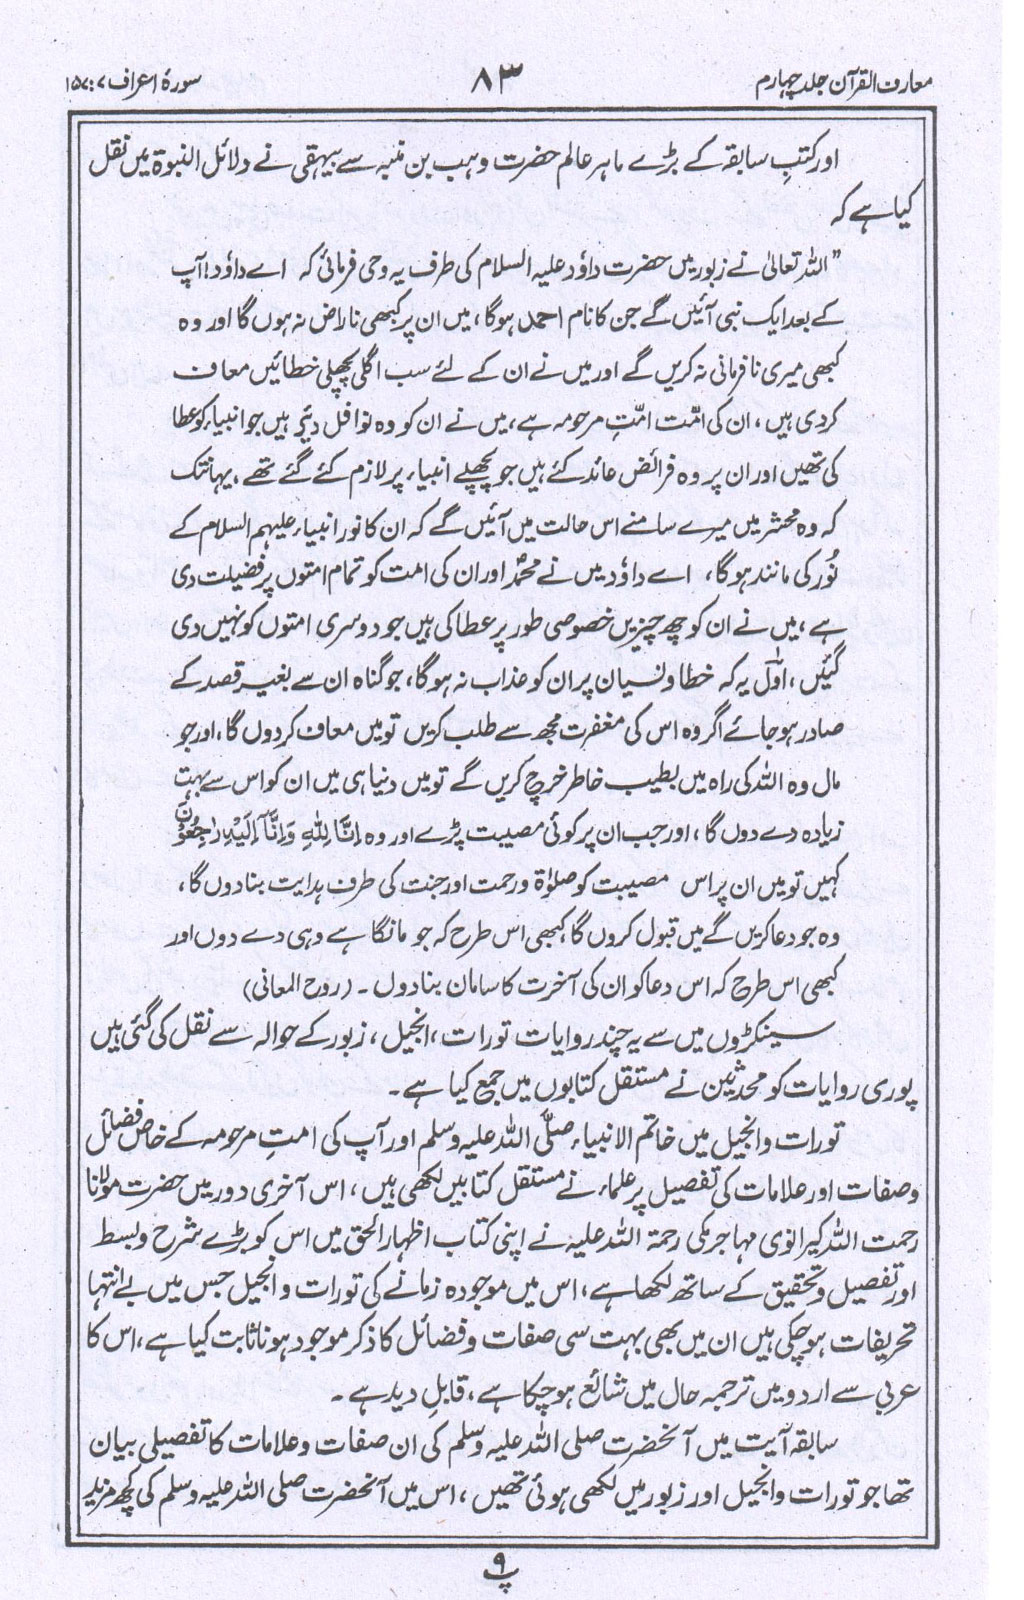 معارف القرآن جلد چہارم ۸۳ سورۂ اعراف ۷:۱۵۷
اور کتبِ سابقہ کے بڑے ماہر عالم حضرت وہب بن منبہ سے بیہقی نے دلائل النبوۃ میں نقل
کیا ہے کہ
”اللہ تعالیٰ نے زبور میں حضرت داؤد علیہ السلام کی طرف یہ وحی فرمائی کہ اے داؤد! آپ
کے بعد ایک نبی آئیں گے جن کا نام احمد ہوگا، میں ان پر کبھی ناراض نہ ہوں گا اور وہ
کبھی میری نافرمانی نہ کریں گے اور میں نے ان کے لئے سب اگلی پچھلی خطائیں معاف
کردی ہیں، ان کی امّت امّتِ مرحومہ ہے، میں نے ان کو وہ نوافل دیئے ہیں جو انبیاء کو عطا
کی تھیں اور ان پر وہ فرائض عائد کئے ہیں جو پچھلے انبیاء پر لازم کئے گئے تھے، یہانتک
کہ وہ محشر میں میرے سامنے اس حالت میں آئیں گے کہ ان کا نور انبیاء علیہم السلام کے
نُور کی مانند ہوگا، اے داؤد میں نے محمدؐ اور ان کی امت کو تمام امتوں پر فضیلت دی
ہے، میں نے ان کو چھ چیزیں خصوصی طور پر عطا کی ہیں جو دوسری امتوں کو نہیں دی
گئیں، اوّل یہ کہ خطا و نسیان پر ان کو عذاب نہ ہوگا، جو گناہ ان سے بغیر قصد کے
صادر ہوجائے اگر وہ اس کی مغفرت مجھ سے طلب کریں تو میں معاف کردوں گا، اور جو
مال وہ اللہ کی راہ میں بطیب خاطر خرچ کریں گے تو میں دنیا ہی میں ان کو اس سے بہت
زیادہ دے دوں گا، اور جب ان پر کوئی مصیبت پڑے اور وہ اِنَّا لِلّٰہِ وَاِنَّآ اِلَیْہِ رٰجِعُوْنَ
کہیں تو میں ان پر اس مصیبت کو صلوٰۃ و رحمت اور جنت کی طرف ہدایت بنادوں گا،
وہ جو دعا کریں گے میں قبول کروں گا، کبھی اس طرح کہ جو مانگا ہے وہی دے دوں اور
کبھی اس طرح کہ اس دعا کو ان کی آخرت کا سامان بنادوں۔ (روح المعانی)
سینکڑوں میں سے یہ چند روایات تورات، انجیل، زبور کے حوالہ سے نقل کی گئی ہیں
پوری روایات کو محدثین نے مستقل کتابوں میں جمع کیا ہے۔
تورات و انجیل میں خاتم الانبیاء صلی اللہ علیہ وسلم اور آپ کی امتِ مرحومہ کے خاص فضائل
و صفات اور علامات کی تفصیل پر علماء نے مستقل کتابیں لکھی ہیں، اس آخری دور میں حضرت مولانا
رحمت اللہ کیرانوی مہاجر مکی رحمۃ اللہ علیہ نے اپنی کتاب اظہار الحق میں اس کو بڑے شرح و بسط
اور تفصیل و تحقیق کے ساتھ لکھا ہے، اس میں موجودہ زمانے کی تورات و انجیل جس میں بے انتہا
تحریفات ہوچکی ہیں ان میں بھی بہت سی صفات و فضائل کا ذکر موجود ہونا ثابت کیا ہے، اس کا
عربی سے اردو میں ترجمہ حال میں شائع ہوچکا ہے، قابلِ دید ہے۔
سابقہ آیت میں آنحضرت صلی اللہ علیہ وسلم کی ان صفات و علامات کا تفصیلی بیان
تھا جو تورات و انجیل اور زبور میں لکھی ہوئی تھیں، اس میں آنحضرت صلی اللہ علیہ وسلم کی کچھ مزید
پ۹